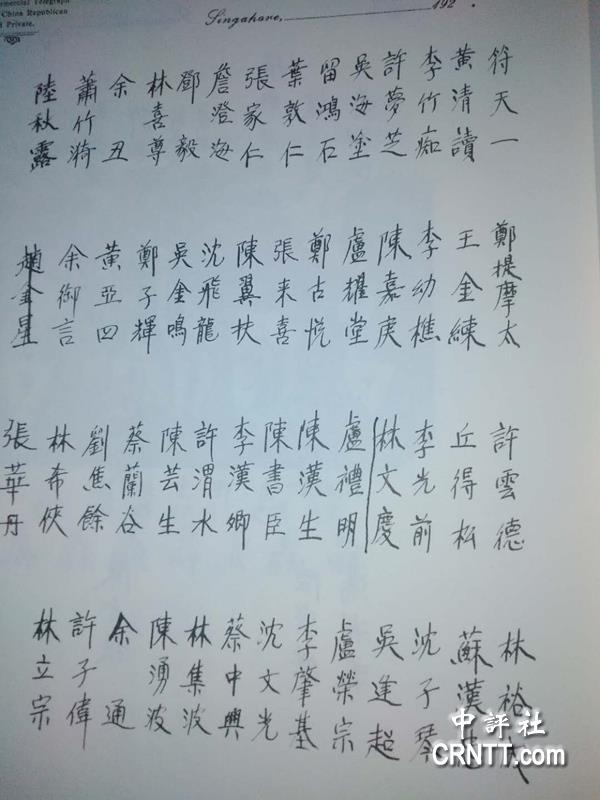 Telegraph
China Republican
Private.
Singapore, 192 .
符天一
黃清讀
李竹痴
許夢芝
吳海塗
留鴻石
葉敦仁
張家仁
詹澄海
鄧毅
林喜尊
余丑
蕭竹漪
陸秋露
鄭提摩太
王金練
李幼樵
陳嘉庚
盧耀堂
鄭古悅
張来喜
陳翼扶
沈飛龍
吳金鳴
鄭子輝
黃亞四
余御言
趙金星
許雲德
丘得松
李光前
林文慶
盧禮明
陳漢生
陳書臣
李漢卿
許渭水
陳芸生
蔡蘭谷
劉焦餘
林希俠
張華丹
林裕
蘇漢
沈子琴
吳逢超
盧榮宗
李肇基
沈文光
蔡中興
林集波
陳湧波
余通
許子偉
林立宗
中評社
CRNTT.com